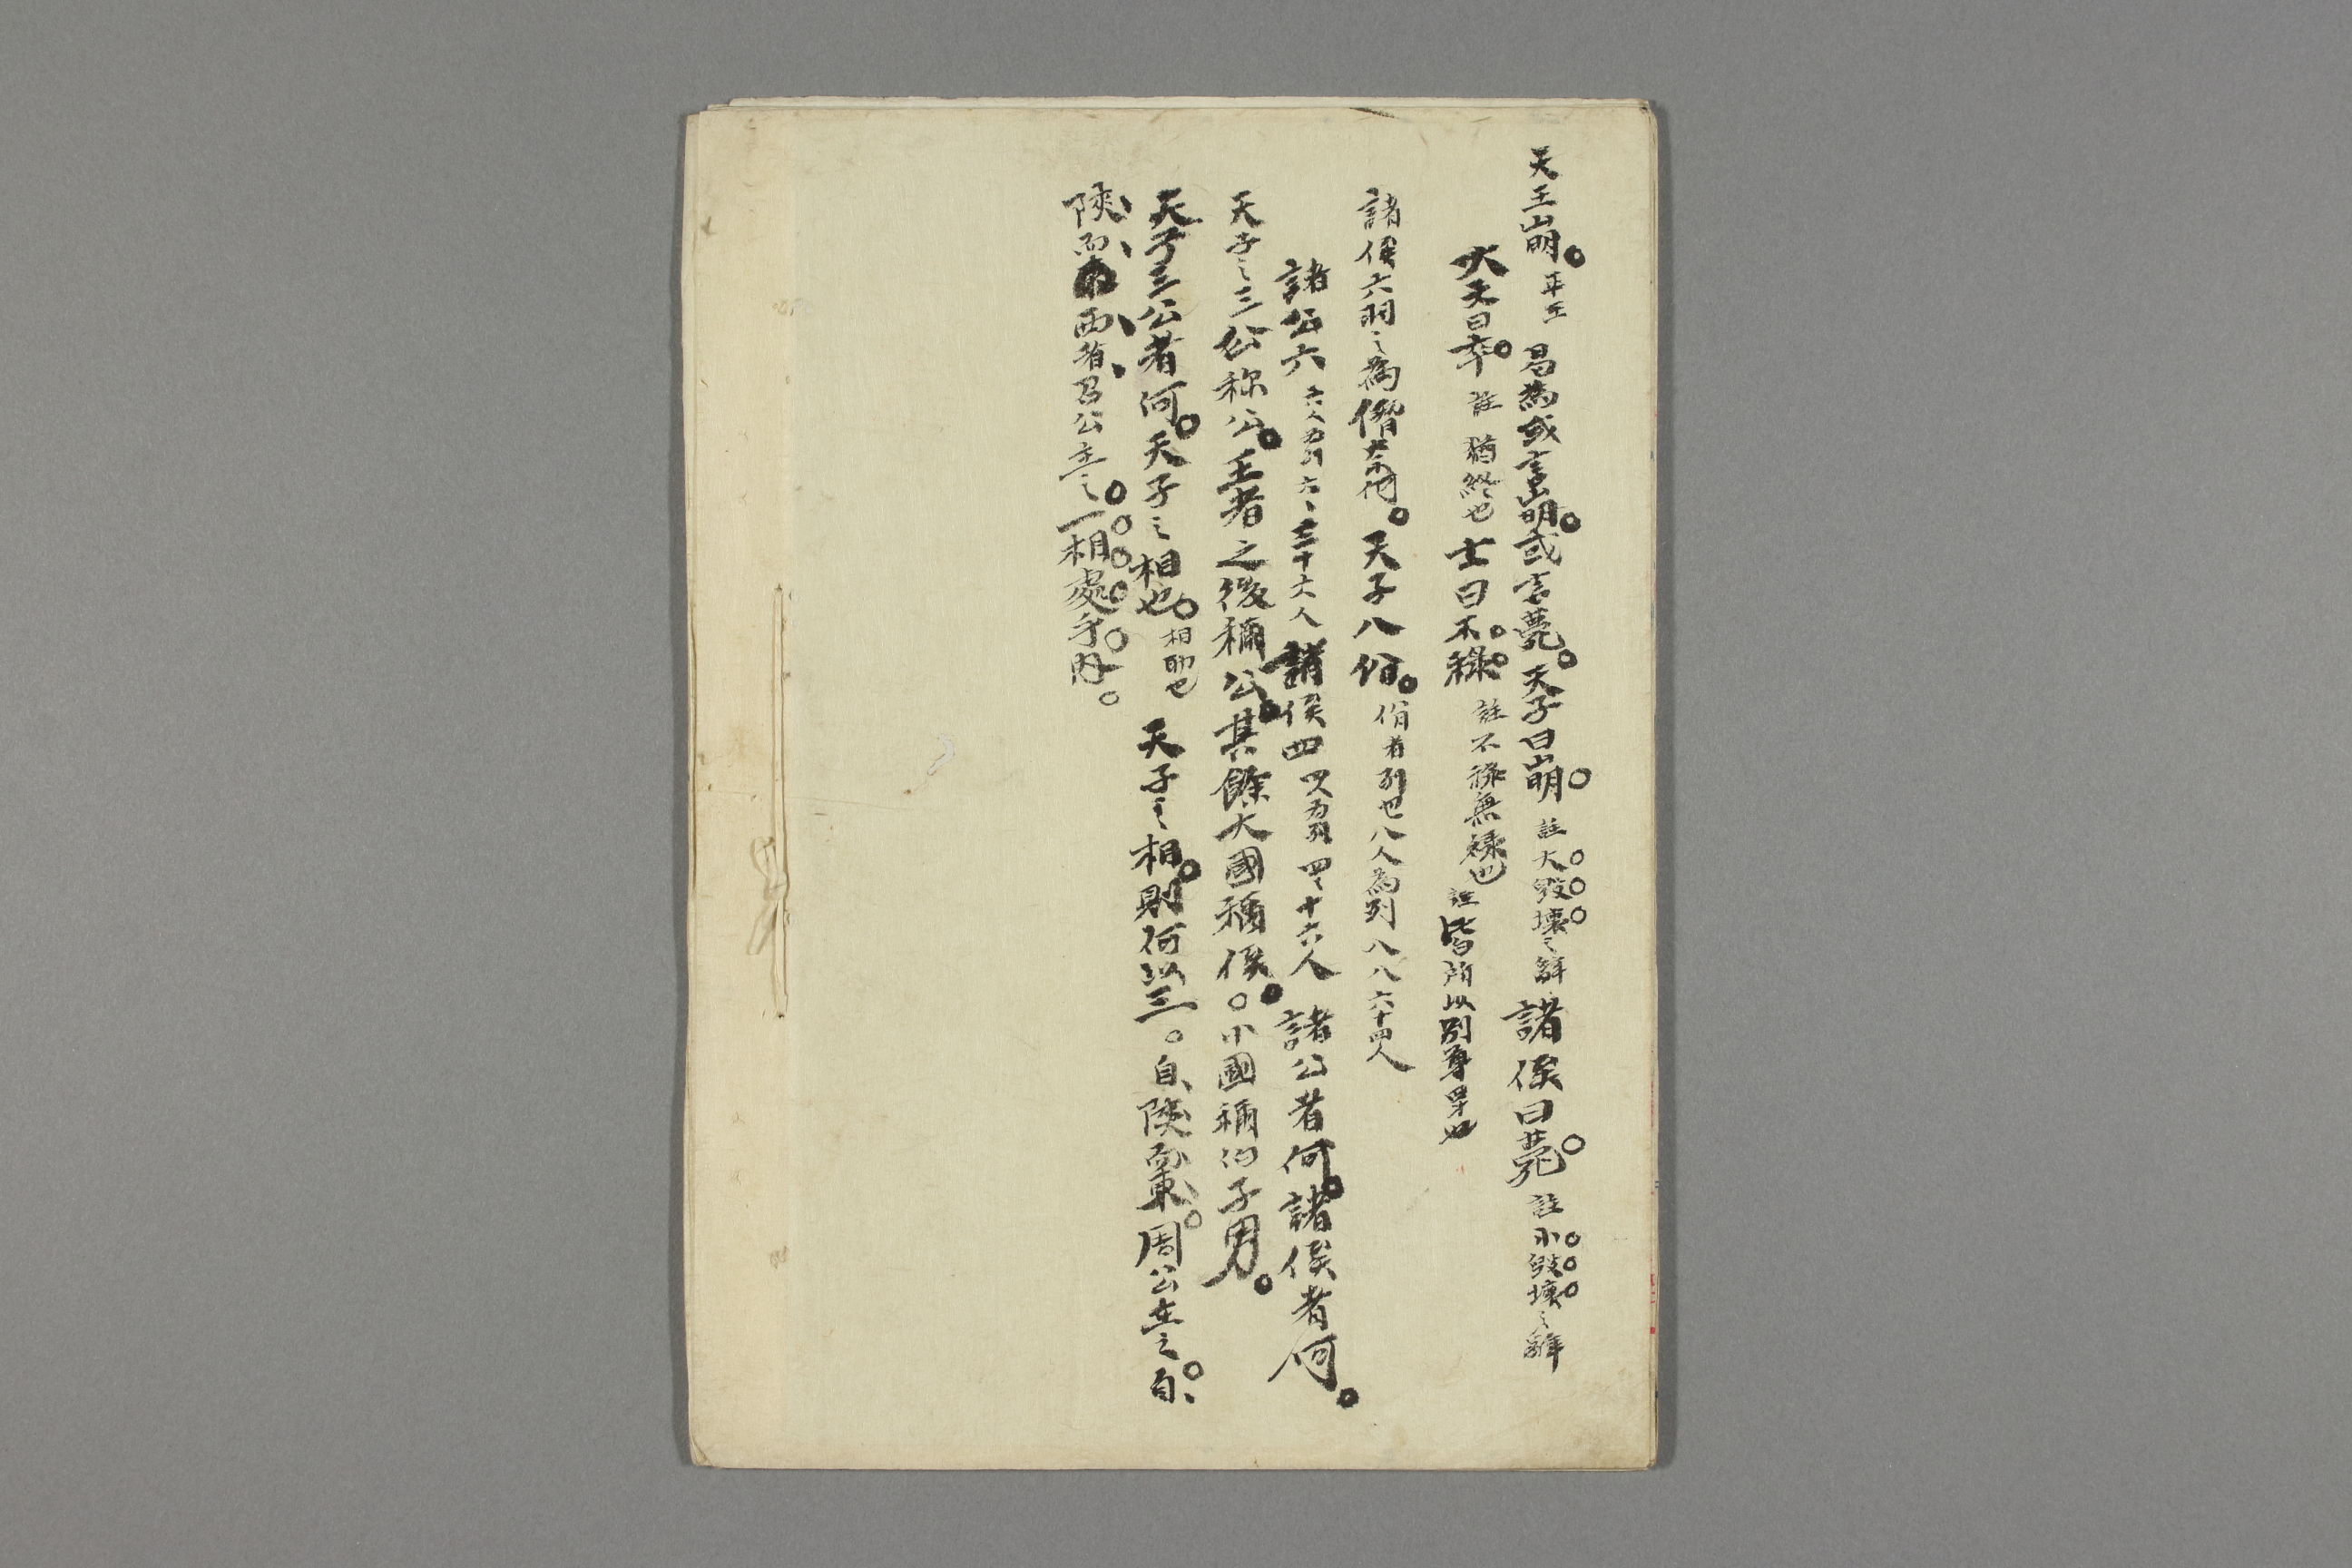 天王崩。平王 曷為或言崩。或言薨。天子曰崩。註大毀壞之辭 諸侯曰薨。註小毀壞之辭
大夫曰卒。註猶終也 士曰不祿。註不祿無祿也 註皆所以別尊卑也
諸侯六羽之為僭奈何。天子八佾。佾者列也八人為列八八六十四人
諸公六 六人為列六〻三十六人 諸侯四 四人為列四〻十六人 諸公者何。諸侯者何。
天子之三公称公。王者之後稱公。其餘大國稱侯。〇小國稱伯子男。
天子三公者何。天子之相也。相助也 天子之相。則何以三。自陝而東。周公主之。自
陝而西者召公主之。一相處乎內。